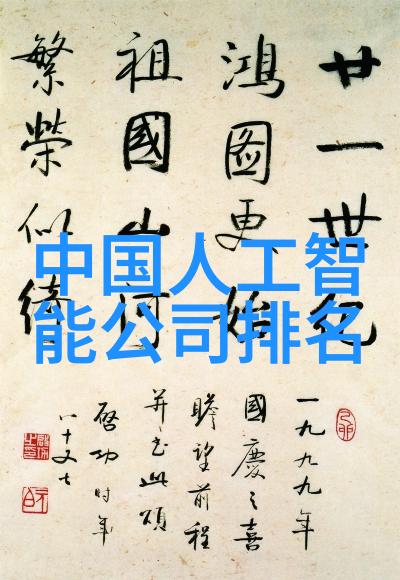 廿一世纪
鴻圖更始
祖國山河
繁榮似綺
中国人工智
能公司排名
一九九九年
國慶之喜
瞻望前程
并书此頌
啓功时年
八十又七